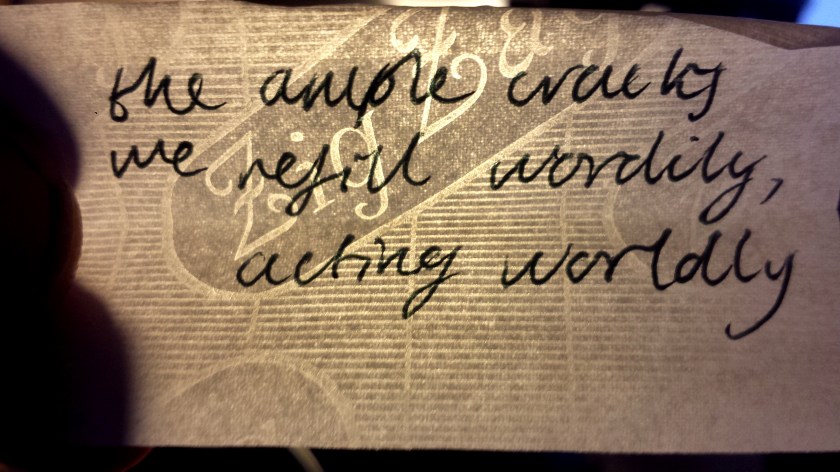 the ample cracks
we refill wordily,
acting worldly
Zig Zag